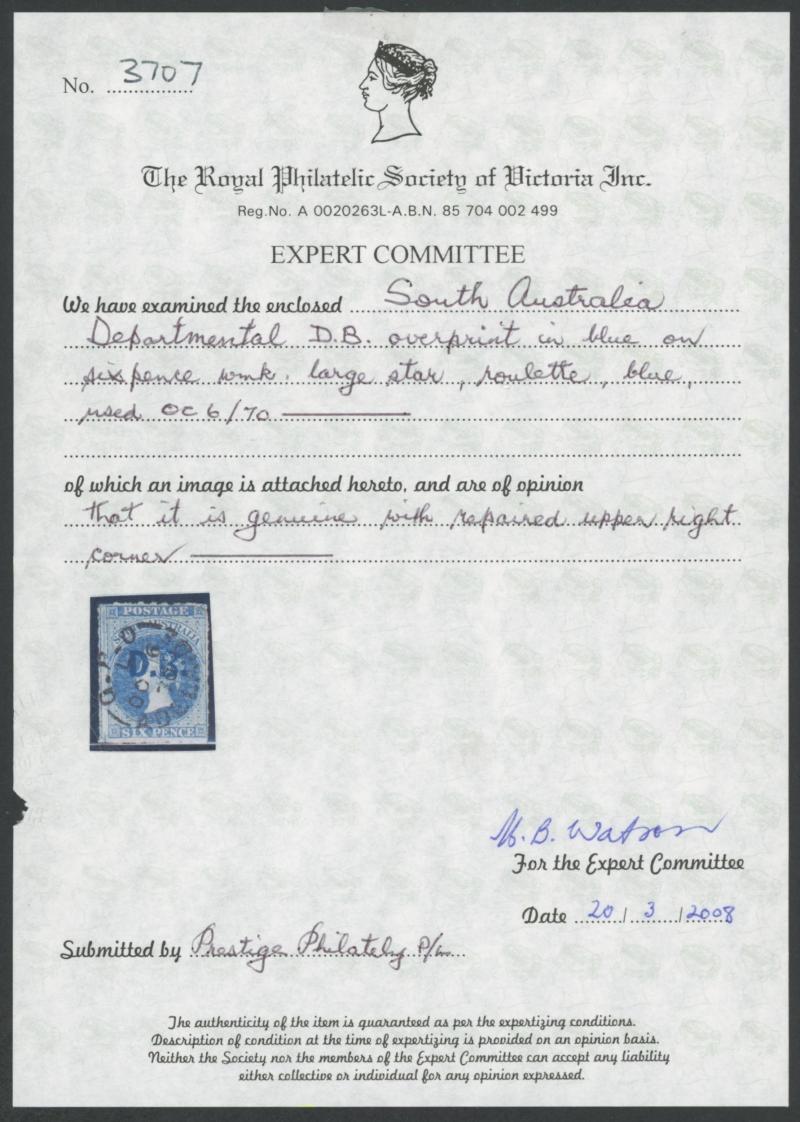 No. 3707
The Royal Philatelic Society of Victoria Inc.
Reg.No. A 0020263L-A.B.N. 85 704 002 499
EXPERT COMMITTEE
We have examined the enclosed South Australia
Departmental D.B. overprint in blue on
sixpence wmk. large star, roulette, blue,
used OC 6/70
of which an image is attached hereto, and are of opinion
that it is genuine with repaired upper right
corner
POSTAGE
SOUTH AUSTRALIA
G.P.O
D.B.
SIX PENCE
M. B. Watson
For the Expert Committee
Date 20 / 3 / 2008
Submitted by Prestige Philately P/L
The authenticity of the item is guaranteed as per the expertizing conditions.
Description of condition at the time of expertizing is provided on an opinion basis.
Neither the Society nor the members of the Expert Committee can accept any liability
either collective or individual for any opinion expressed.